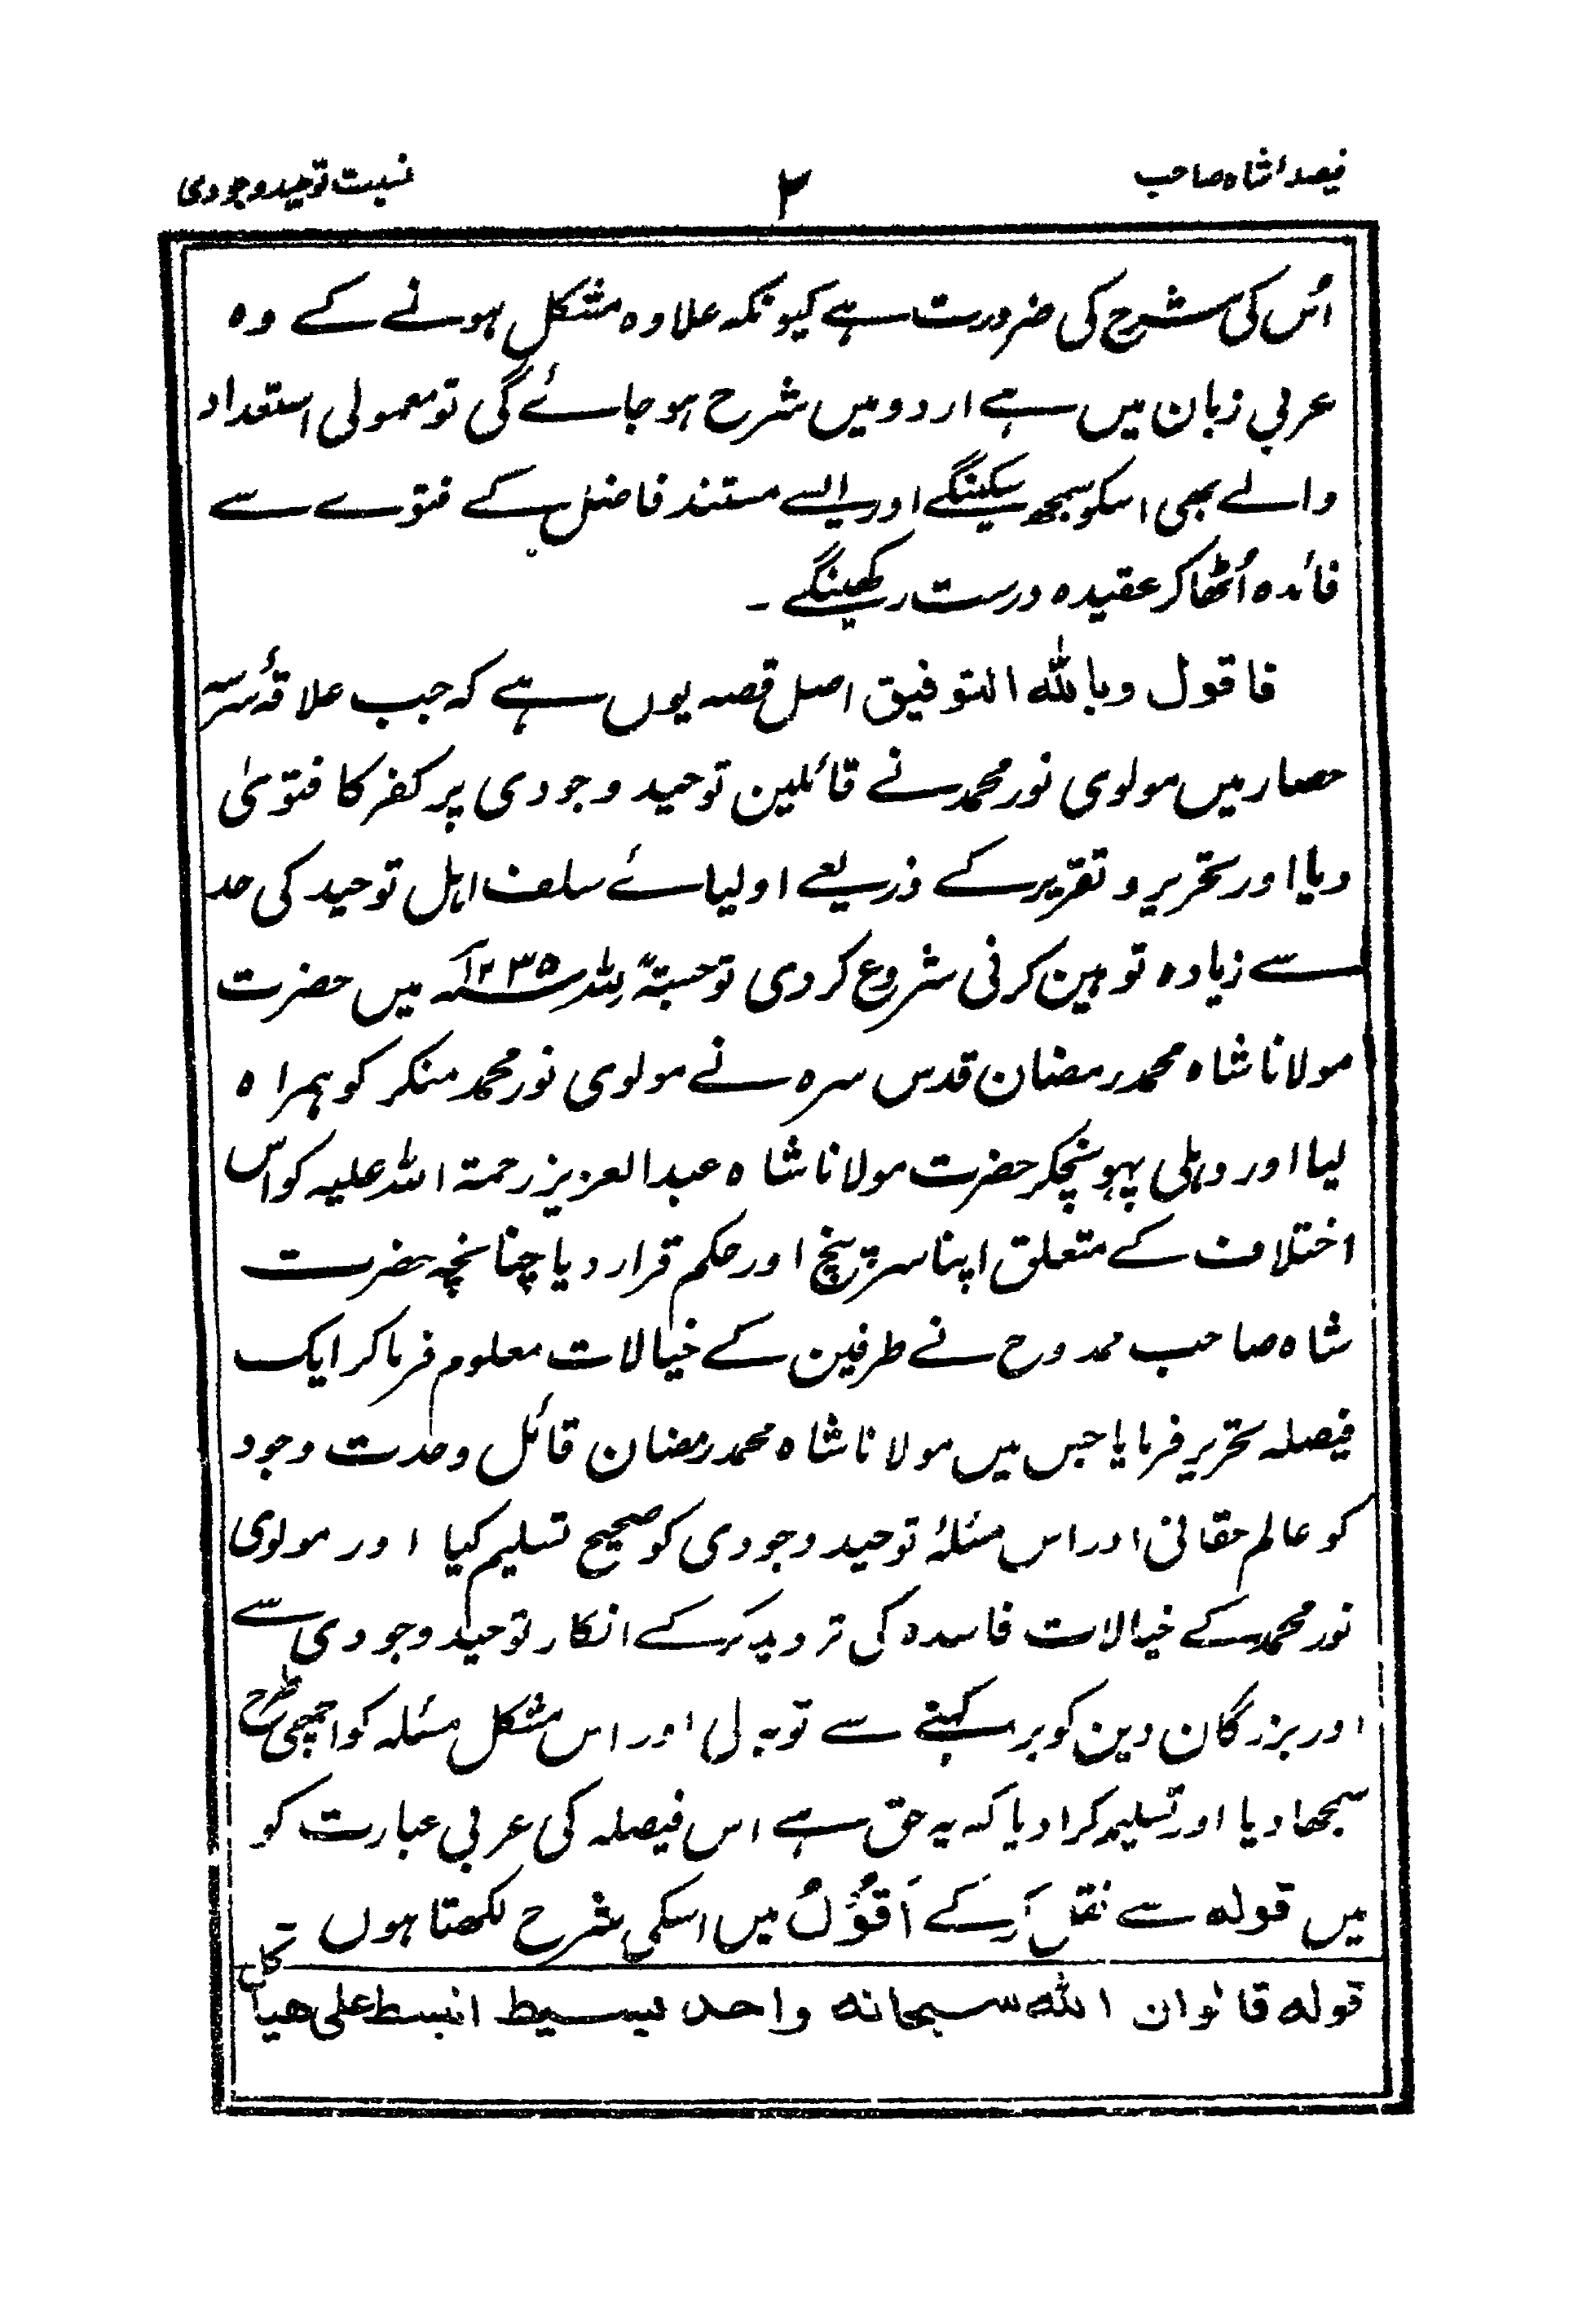 فیصلۂ شاہ صاحب ۲ نسبت توحید وجودی
اُس کی شرح کی ضرورت ہے کیونکہ علاوہ مشکل ہونے کے وہ
عربی زبان میں ہے اردو میں شرح ہو جائے گی تو معمولی استعداد
والے بھی اسکو سمجھ سکینگے اور ایسے مستند فاضل کے فتوے سے
فائدہ اُٹھا کر عقیدہ درست رکھینگے ۔
فاقول وباللہ التوفیق اصل قصہ یوں ہے کہ جب علاقۂ سرسہ
حصار میں مولوی نور محمد نے قائلین توحید وجودی پر کفر کا فتویٰ
دیا اور تحریر و تقریر کے ذریعے اولیائے سلف اہل توحید کی حد
سے زیادہ توہین کرنی شروع کردی تو حسبتہً للہ ۱۲۳۵ھ میں حضرت
مولانا شاہ محمد رمضان قدس سرہ نے مولوی نور محمد منکر کو ہمراہ
لیا اور دہلی پہونچکر حضرت مولانا شاہ عبد العزیز رحمۃ اللہ علیہ کو اس
اختلاف کے متعلق اپنا سرپنچ اور حکم قرار دیا چنانچہ حضرت
شاہ صاحب ممدوح نے طرفین کے خیالات معلوم فرما کر ایک
فیصلہ تحریر فرمایا جس میں مولانا شاہ محمد رمضان قائل وحدت وجود
کو عالم حقانی اور اس مسئلۂ توحید وجودی کو صحیح تسلیم کیا اور مولوی
نور محمد کے خیالات فاسدہ کی تردید کر کے انکار توحید وجودی سے
اور بزرگان دین کو برا کہنے سے توبہ لی اور اس مشکل مسئلہ کو اچھی طرح
سمجھا دیا اور تسلیم کرا دیا کہ یہ حق ہے اس فیصلہ کی عربی عبارت کو
میں قولہ سے نقل کر کے اَقُوْلُ میں اسکی شرح لکھتا ہوں ۔
قولہ قالوا ان اللہ سبحانہ واحد بسیط انبسط علی ھیاکل